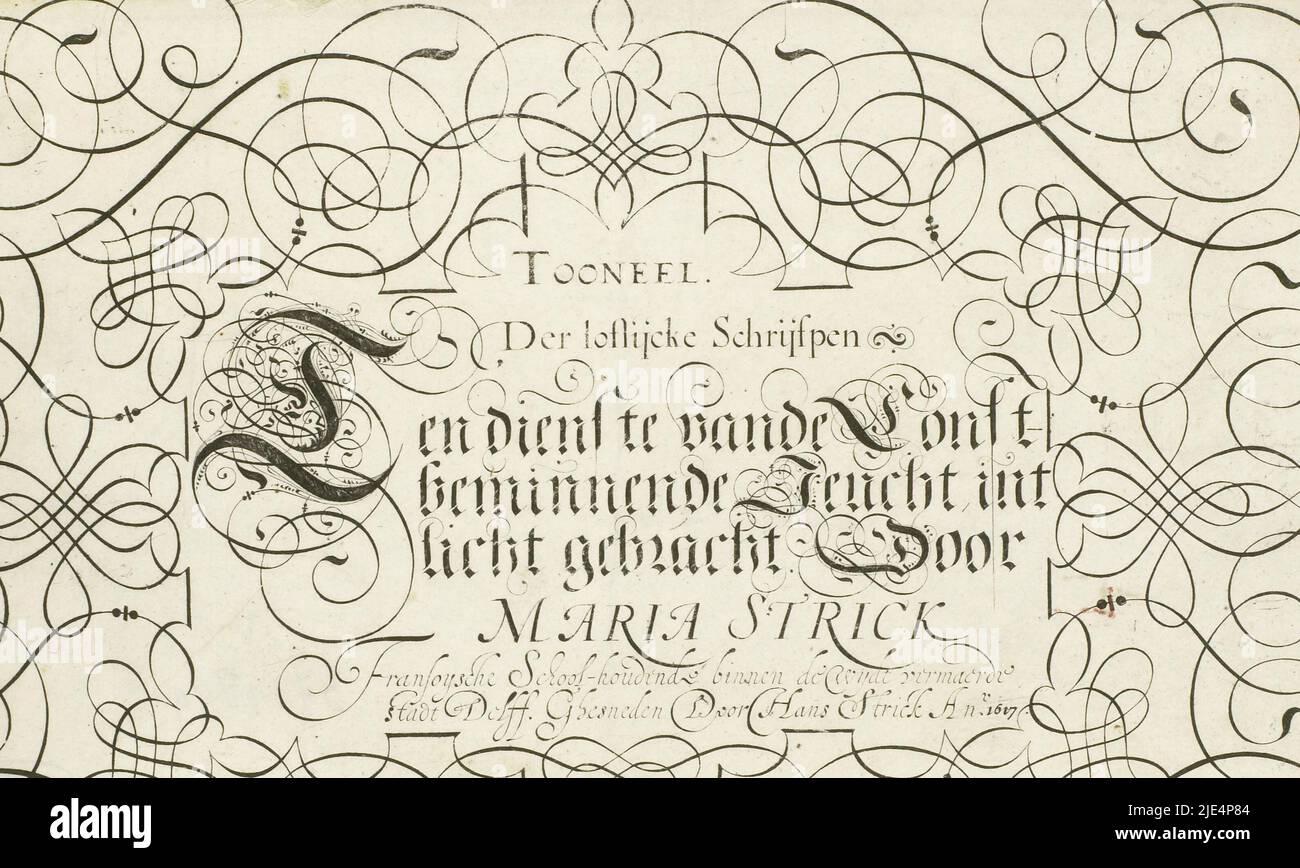 TOONEEL.
Der loflijcke Schrijfpen
Ten dienste vande Const-
beminnende Jeucht, int
licht gebracht. Door
MARIA STRICK
Fransoysche School-houdende binnen de wydt vermaerde
stadt Delff. Ghesneden Door Hans Strick An.º 1607.
a
alamy
Image ID: 2JE4P84
www.alamy.com